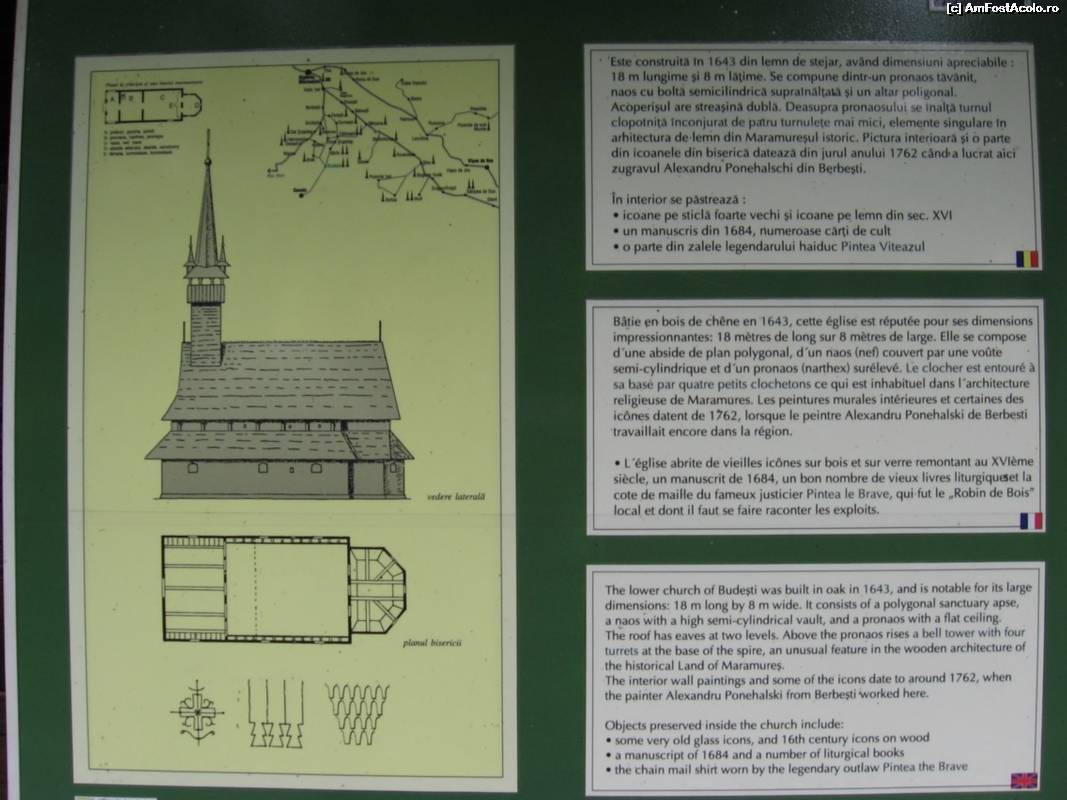 [c] AmFostAcolo.ro
vedere laterală
planul bisericii
Este construită în 1643 din lemn de stejar, având dimensiuni apreciabile :
18 m lungime și 8 m lățime. Se compune dintr-un pronaos tăvănit,
naos cu boltă semicilindrică supraînălțată și un altar poligonal.
Acoperișul are streașină dublă. Deasupra pronaosului se înalță turnul
clopotniță înconjurat de patru turnulețe mai mici, elemente singulare în
arhitectura de lemn din Maramureșul istoric. Pictura interioară și o parte
din icoanele din biserică datează din jurul anului 1762 când a lucrat aici
zugravul Alexandru Ponehalschi din Berbești.
În interior se păstrează :
• icoane pe sticlă foarte vechi și icoane pe lemn din sec. XVI
• un manuscris din 1684, numeroase cărți de cult
• o parte din zalele legendarului haiduc Pintea Viteazul
Bâtie en bois de chêne en 1643, cette église est réputée pour ses dimensions
impressionnantes: 18 mètres de long sur 8 mètres de large. Elle se compose
d´une abside de plan polygonal, d´un naos (nef) couvert par une voûte
semi-cylindrique et d´un pronaos (narthex) surélevé. Le clocher est entouré à
sa base par quatre petits clochetons ce qui est inhabituel dans l´architecture
religieuse de Maramures. Les peintures murales intérieures et certaines des
icônes datent de 1762, lorsque le peintre Alexandru Ponehalski de Berbesti
travaillait encore dans la région.
• L´église abrite de vieilles icônes sur bois et sur verre remontant au XVIème
siècle, un manuscrit de 1684, un bon nombre de vieux livres liturgiques et la
cote de maille du fameux justicier Pintea le Brave, qui fut le „Robin de Bois”
local et dont il faut se faire raconter les exploits.
The lower church of Budești was built in oak in 1643, and is notable for its large
dimensions: 18 m long by 8 m wide. It consists of a polygonal sanctuary apse,
a naos with a high semi-cylindrical vault, and a pronaos with a flat ceiling.
The roof has eaves at two levels. Above the pronaos rises a bell tower with four
turrets at the base of the spire, an unusual feature in the wooden architecture of
the historical Land of Maramureș.
The interior wall paintings and some of the icons date to around 1762, when
the painter Alexandru Ponehalski from Berbești worked here.
Objects preserved inside the church include:
• some very old glass icons, and 16th century icons on wood
• a manuscript of 1684 and a number of liturgical books
• the chain mail shirt worn by the legendary outlaw Pintea the Brave